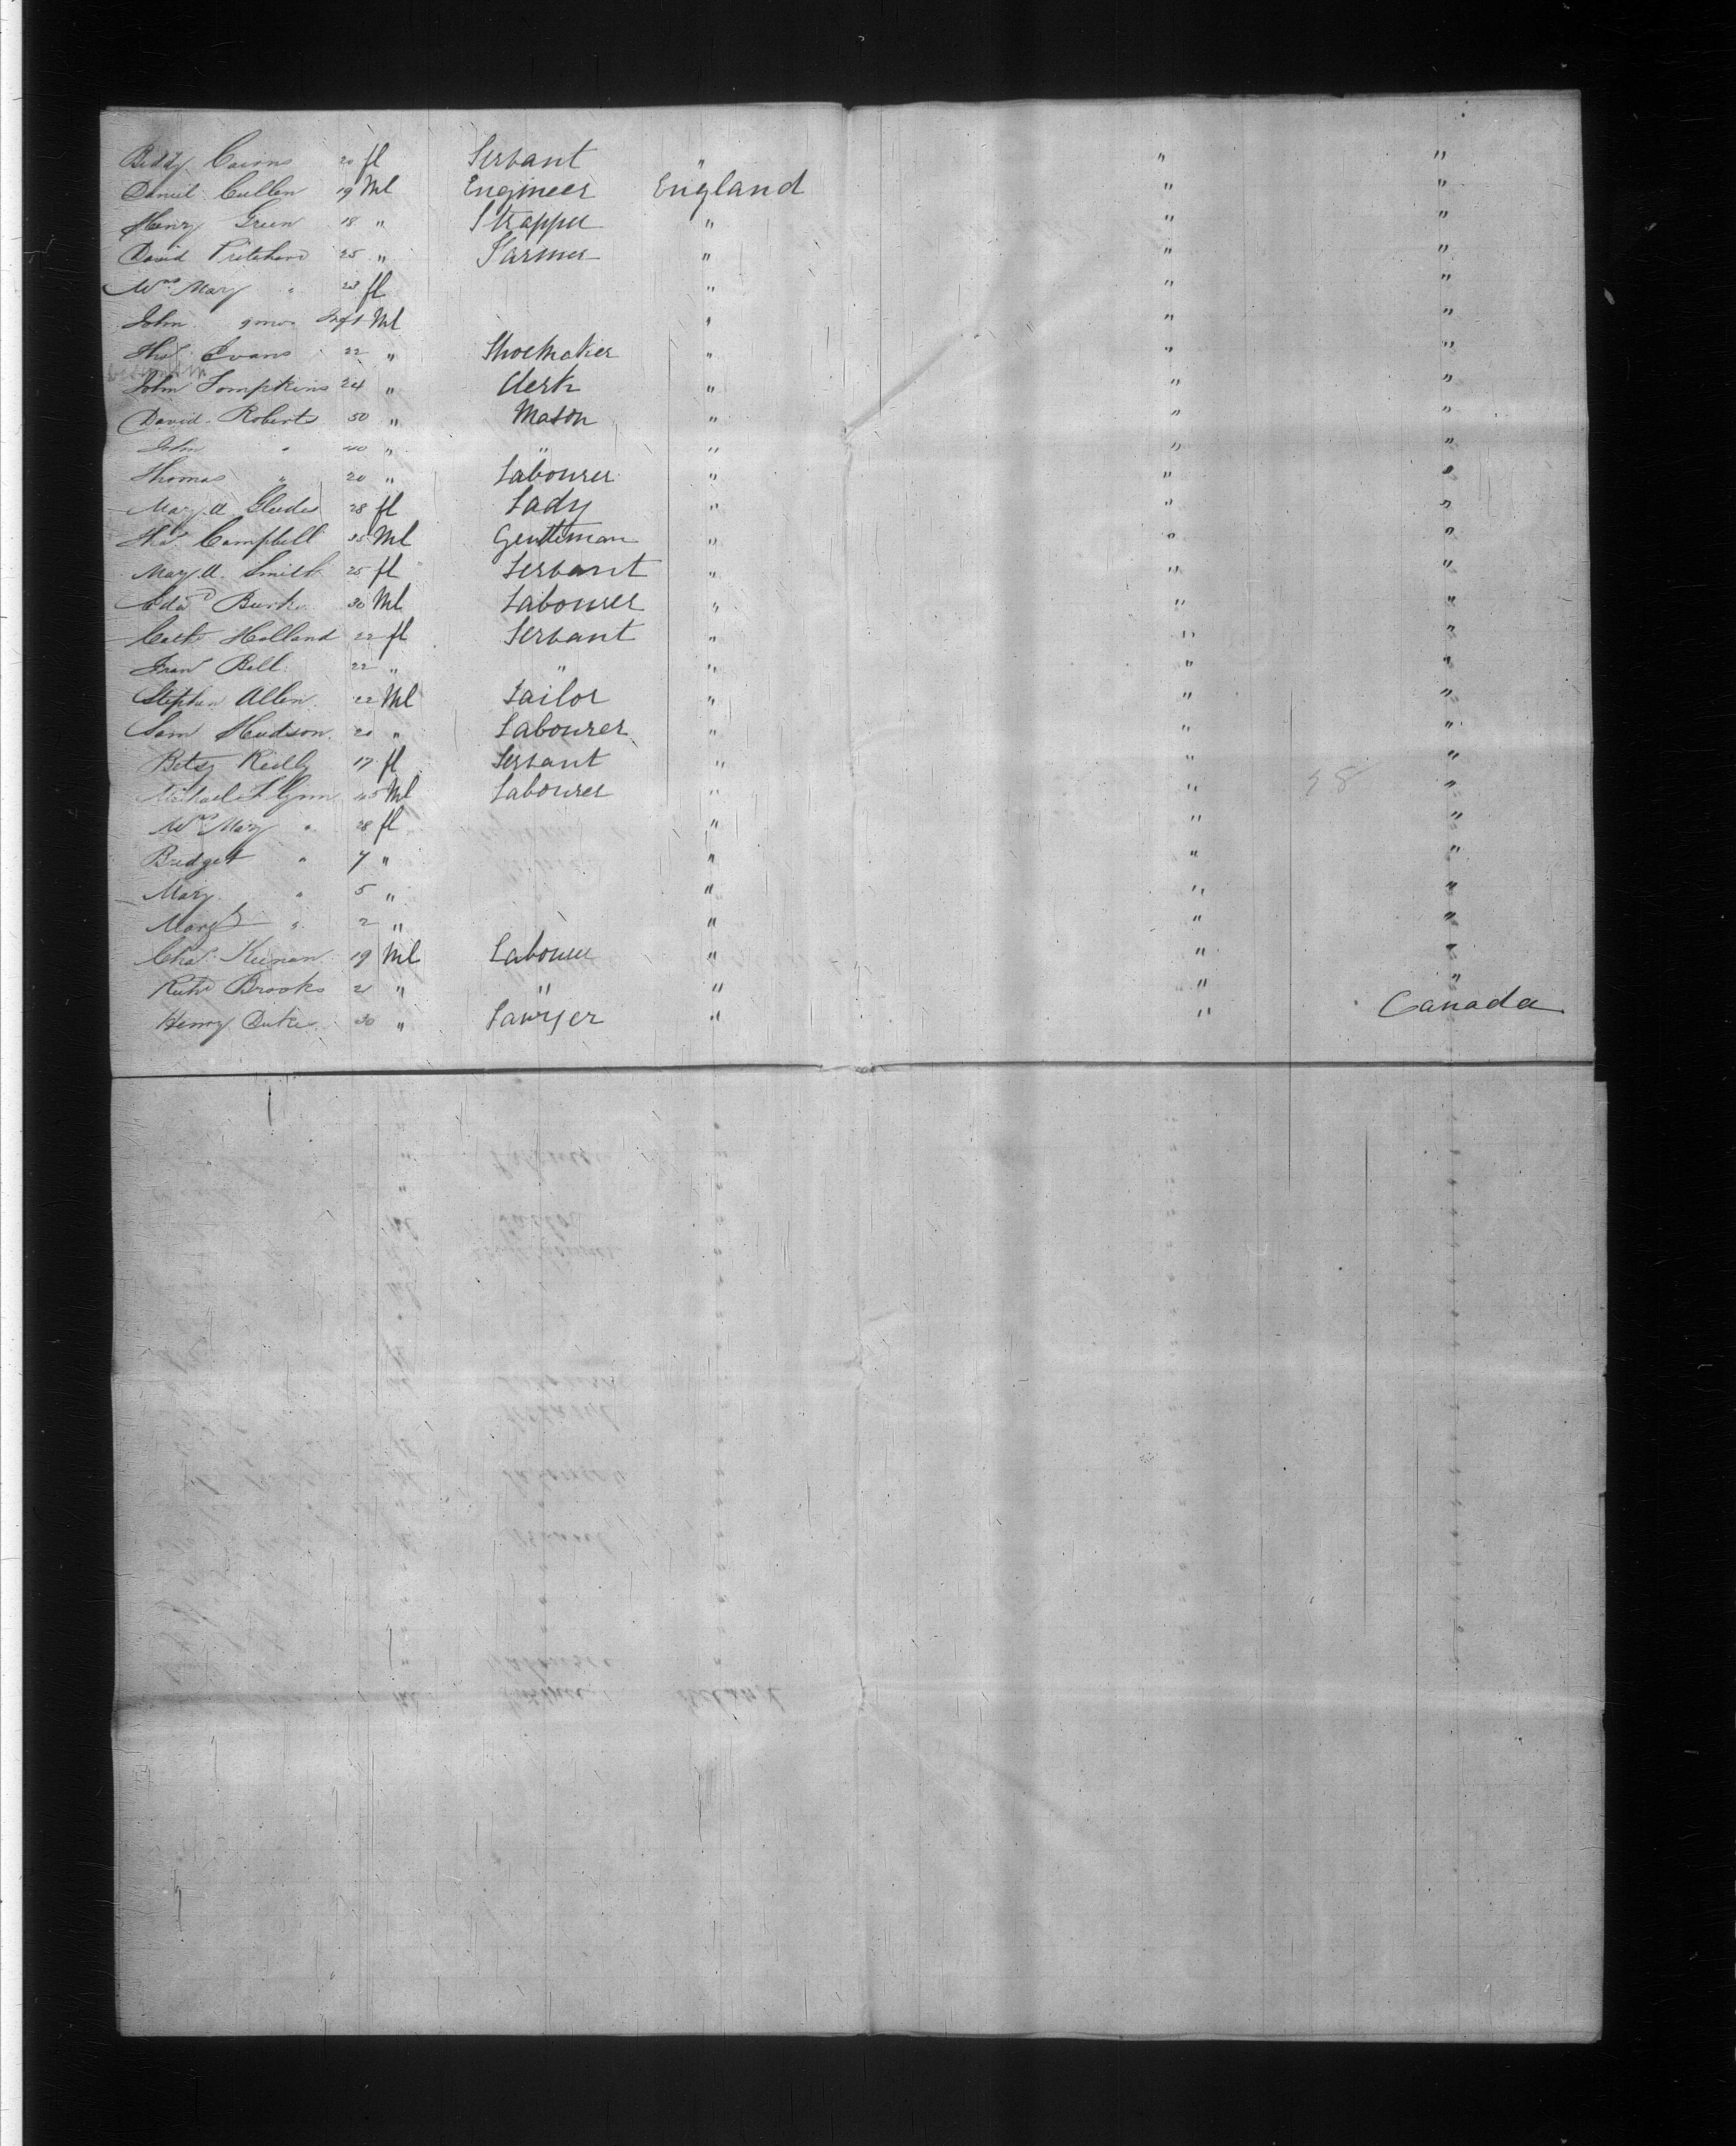 Biddy Cairns 20 fl Servant " " "
Daniel Cullen 19 Ml Engineer England " "
Henry Green 18 " Strapper " " "
David Pritchard 25 " Farmer " " "
Mrs Mary " 23 fl " " "
John 9 mos Inft Ml " " "
Thos Evans 22 " Shoemaker " " "
John Tompkins 24 " Clerk " " "
David Roberts 50 " Mason " " "
John " 40 " " " " "
Thomas " 20 " Labourer " " "
Mary A 28 fl Lady " " "
Thos Campbell 35 Ml Gentleman " " "
Mary A. Smith 25 fl Servant " " "
Edwd Burke 30 Ml Labourer " " "
Cath Holland 22 fl Servant " " "
Fran Bell 22 " " " " "
Stephen Allen 22 Ml Tailor " " "
Sam Hudson 20 " Labourer " " "
Betsy Reilly 17 fl Servant " " "
Michael Flynn 45 Ml Labourer " " "
Mrs Mary " 28 fl " " "
Bridget " 7 " " " "
Mary " 5 " " " "
Margt " 2 " " " "
Chas Keenan 19 Ml Labourer " " "
Richd Brooks 21 " " " " "
Henry Duke 30 " Sawyer " " Canada